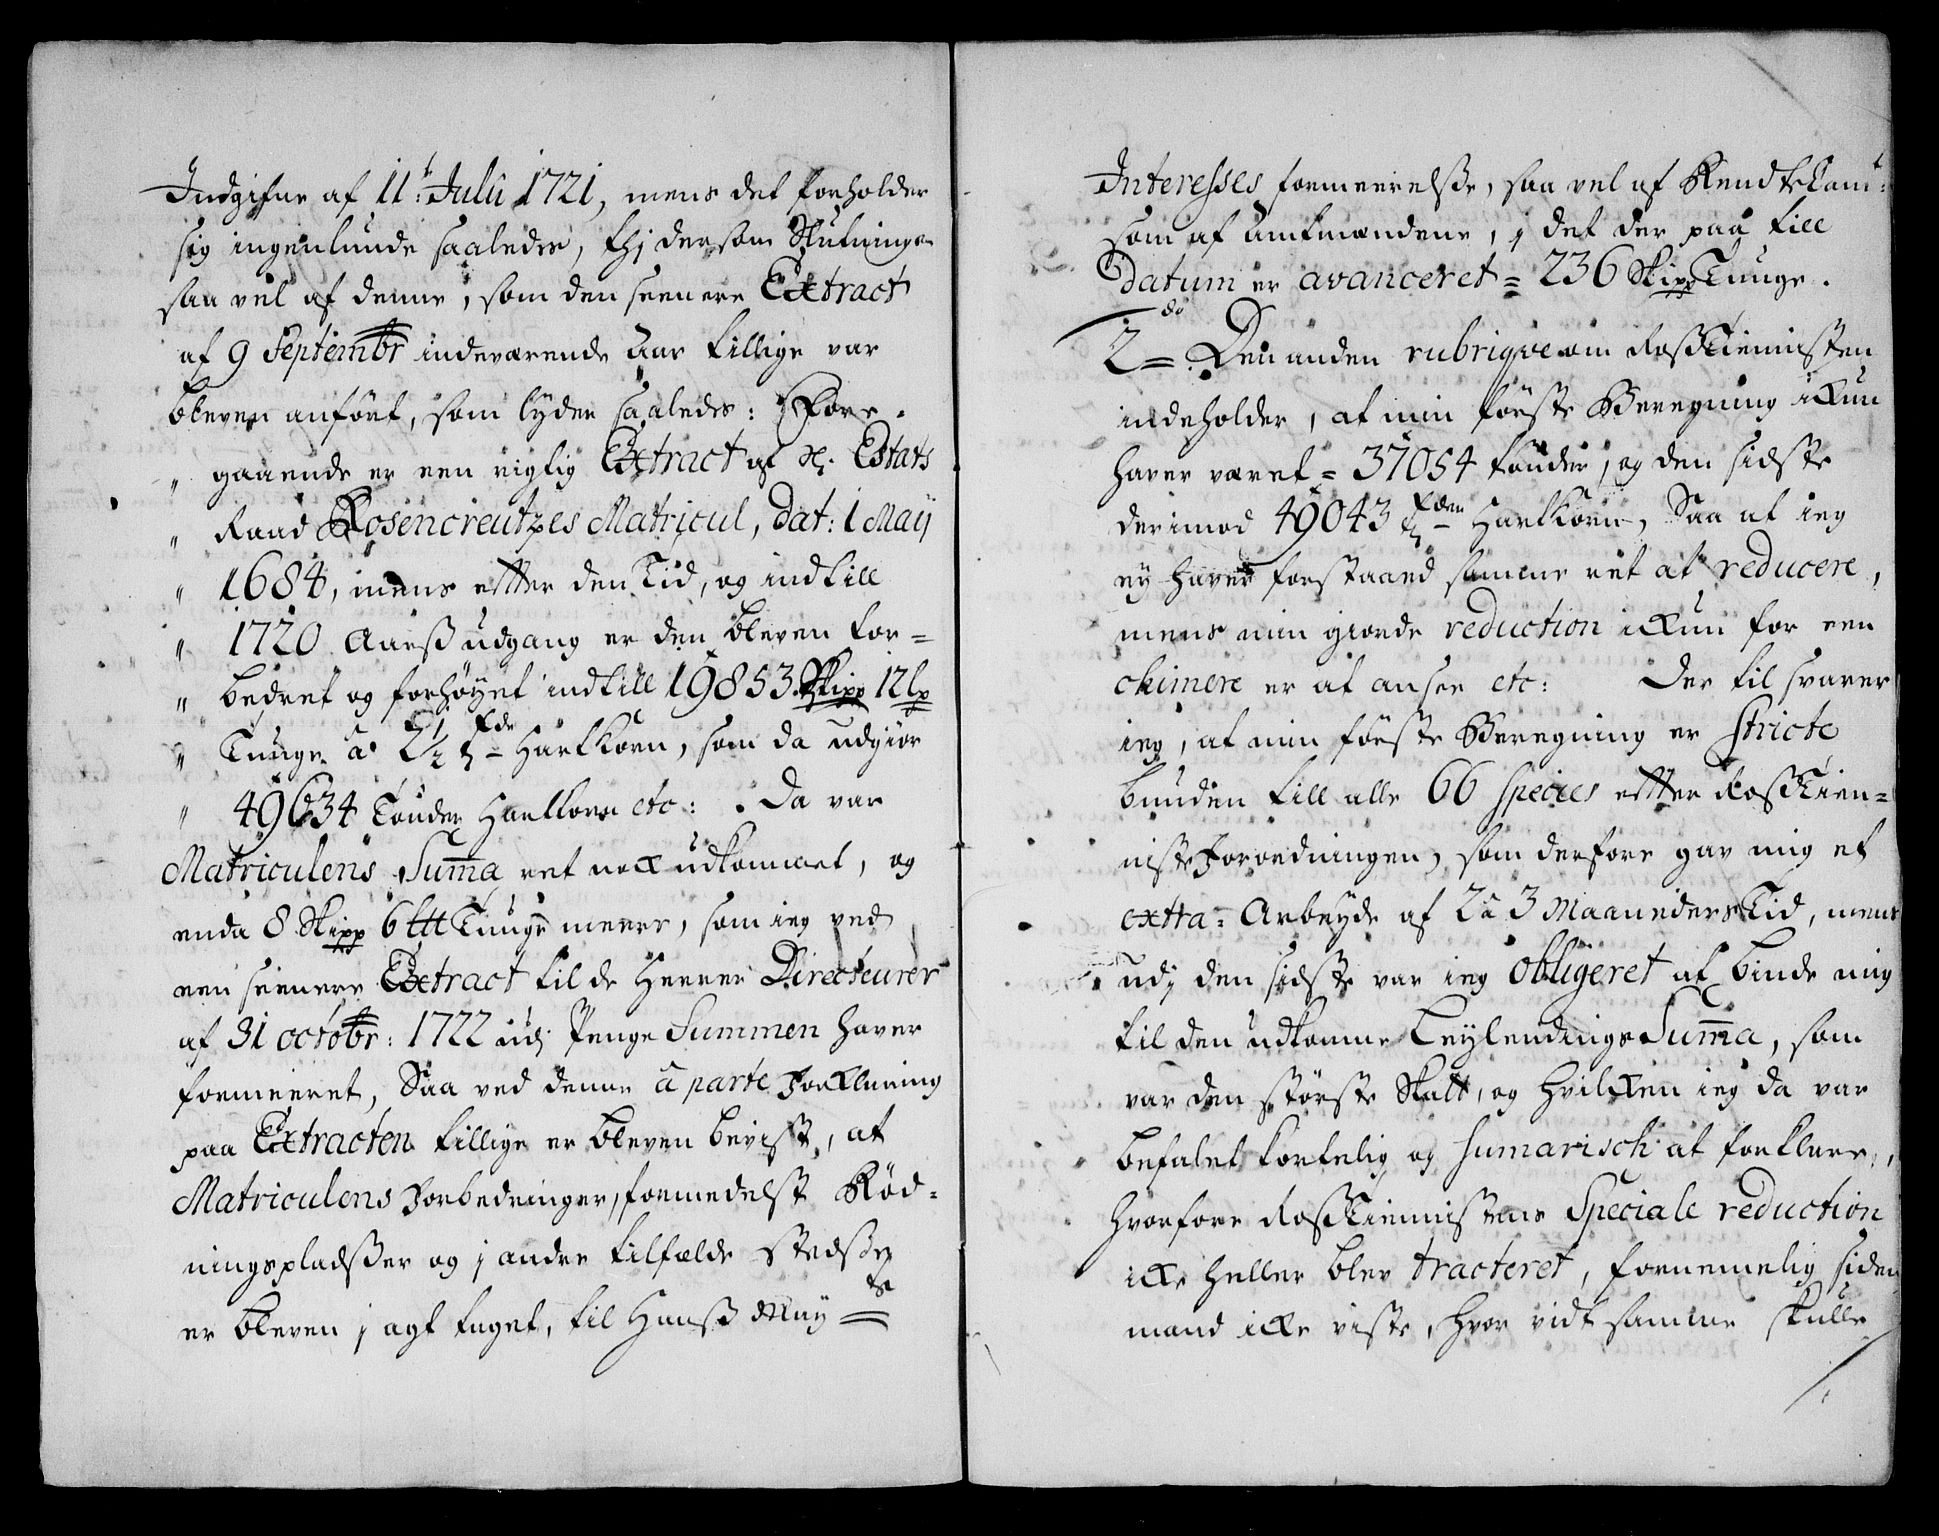 Indgifne af 11t: Julii 1721, mens det forholder
sig ingenlunde saaledes, thj dersom Slutningen
saa vel af denne, som den seenere Extract
af 9 Septembr indeværende Aar tillige var
bleven anfört, som lyder saaledes: Fore-
" gaaende er een rigtig Extract af H. Estats
" Raad Rosencreutzes Matricul, Dat: 1 Maij
" 1684, mens efter den Tid, og indtill
" 1720 Aarß udgang er den bleven for-
" bedret og forhøyet indtill 19853 Skipp 12 lp
" Tunge â 2½ tde Hartkorn, som da udgiør
" 49634 Tønder Hartkorn etc: . Da var
Matriculens Summa ret nok udkommet, og
enda 8 Skipp 6 ltt Tunge meere, som ieg ved
een seenere Extract til de Herrer Directeurer
af 31 octobr: 1722 udj Penge Summen haver
formeeret, Saa ved denne â parte Forklaring
paa Extracten tillige er bleven bevist, at
Matriculens Forbedringer, formedelst Röd-
ningspladßer og j andre tilfælde stedße
er bleven j agt taget, til Hanß May ts
Interesses formeerelße, saa vel af Rendtekam:t
som af Amtmændene, j det der paa till
Datum er avanceret = 236 Skipp Tunge.
2do= Den anden rubrique om Roßtiennisten
indeholder, at min förste Beregning ikun
haver været = 37054 tönder, og den sidste
derimod 49043 tder Hartkorn, Saa at ieg
ey haver forstaaed samme ret at reducere,
mens min giorde reduction ikun for een
chimere er at ansee etc: Der til svarer
ieg, at min förste Beregning er stricte
bunden till alle 66 species efter Roßtien-
niste Forordningen, som derfore gav mig et
extra= Arbeyde af 2 â 3 Maaneders Tid, mens
udj den sidste var ieg obligeret at binde mig
til den udkomne Leylendings Summa, som
var den störste Skatt, og hvilken ieg da var
befalet kortelig og sumarisch at forklare,
hvorfore Roßtiennistens Speciale reduction
icke heller blev tracteret, fornemelig siden
mand icke viste, hvor vidt samme skulle